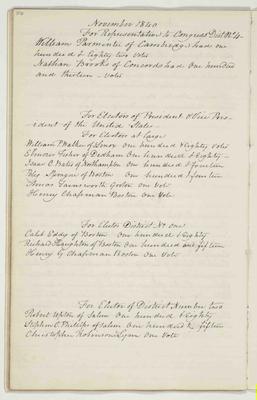 November 1840
For Representative to Congress Dist No 4-
William Parmenter of Cambridge had one
hundred & Eighty two votes
Nathan Brooks of Concord had One hundred
and thirteen - votes
For Elector of President & Vice Pres-
-ident of the United State
For Elector at large
William P Walker of Lenox One hundred & Eighty Votes
Ebenezer Fisher of Dedham One hundred & Eighty -
Isaac C Bates of Northampton One hundred & fourteen
Peleg Sprague of Boston One hundred & fourteen
Amos Farnsworth Groton One Vote
Henry Chapman Boston One Vote
For Elector District No One
Caleb Eddy of Boston One hundred & Eighty
Richard Haughton of Boston One hundred and fifteen
Henry G Chapman Boston One Vote
For Elector of District Number two
Robert Upton of Salem One hundred & Eighty
Stephen C Phillips of Salem One hundred & fifteen
Christopher Robinson Lynn One Vote